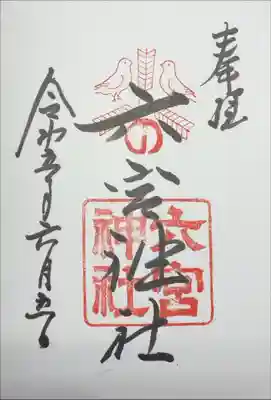 奉拝
六宮神社
六宮
神社
令和五年六月五日